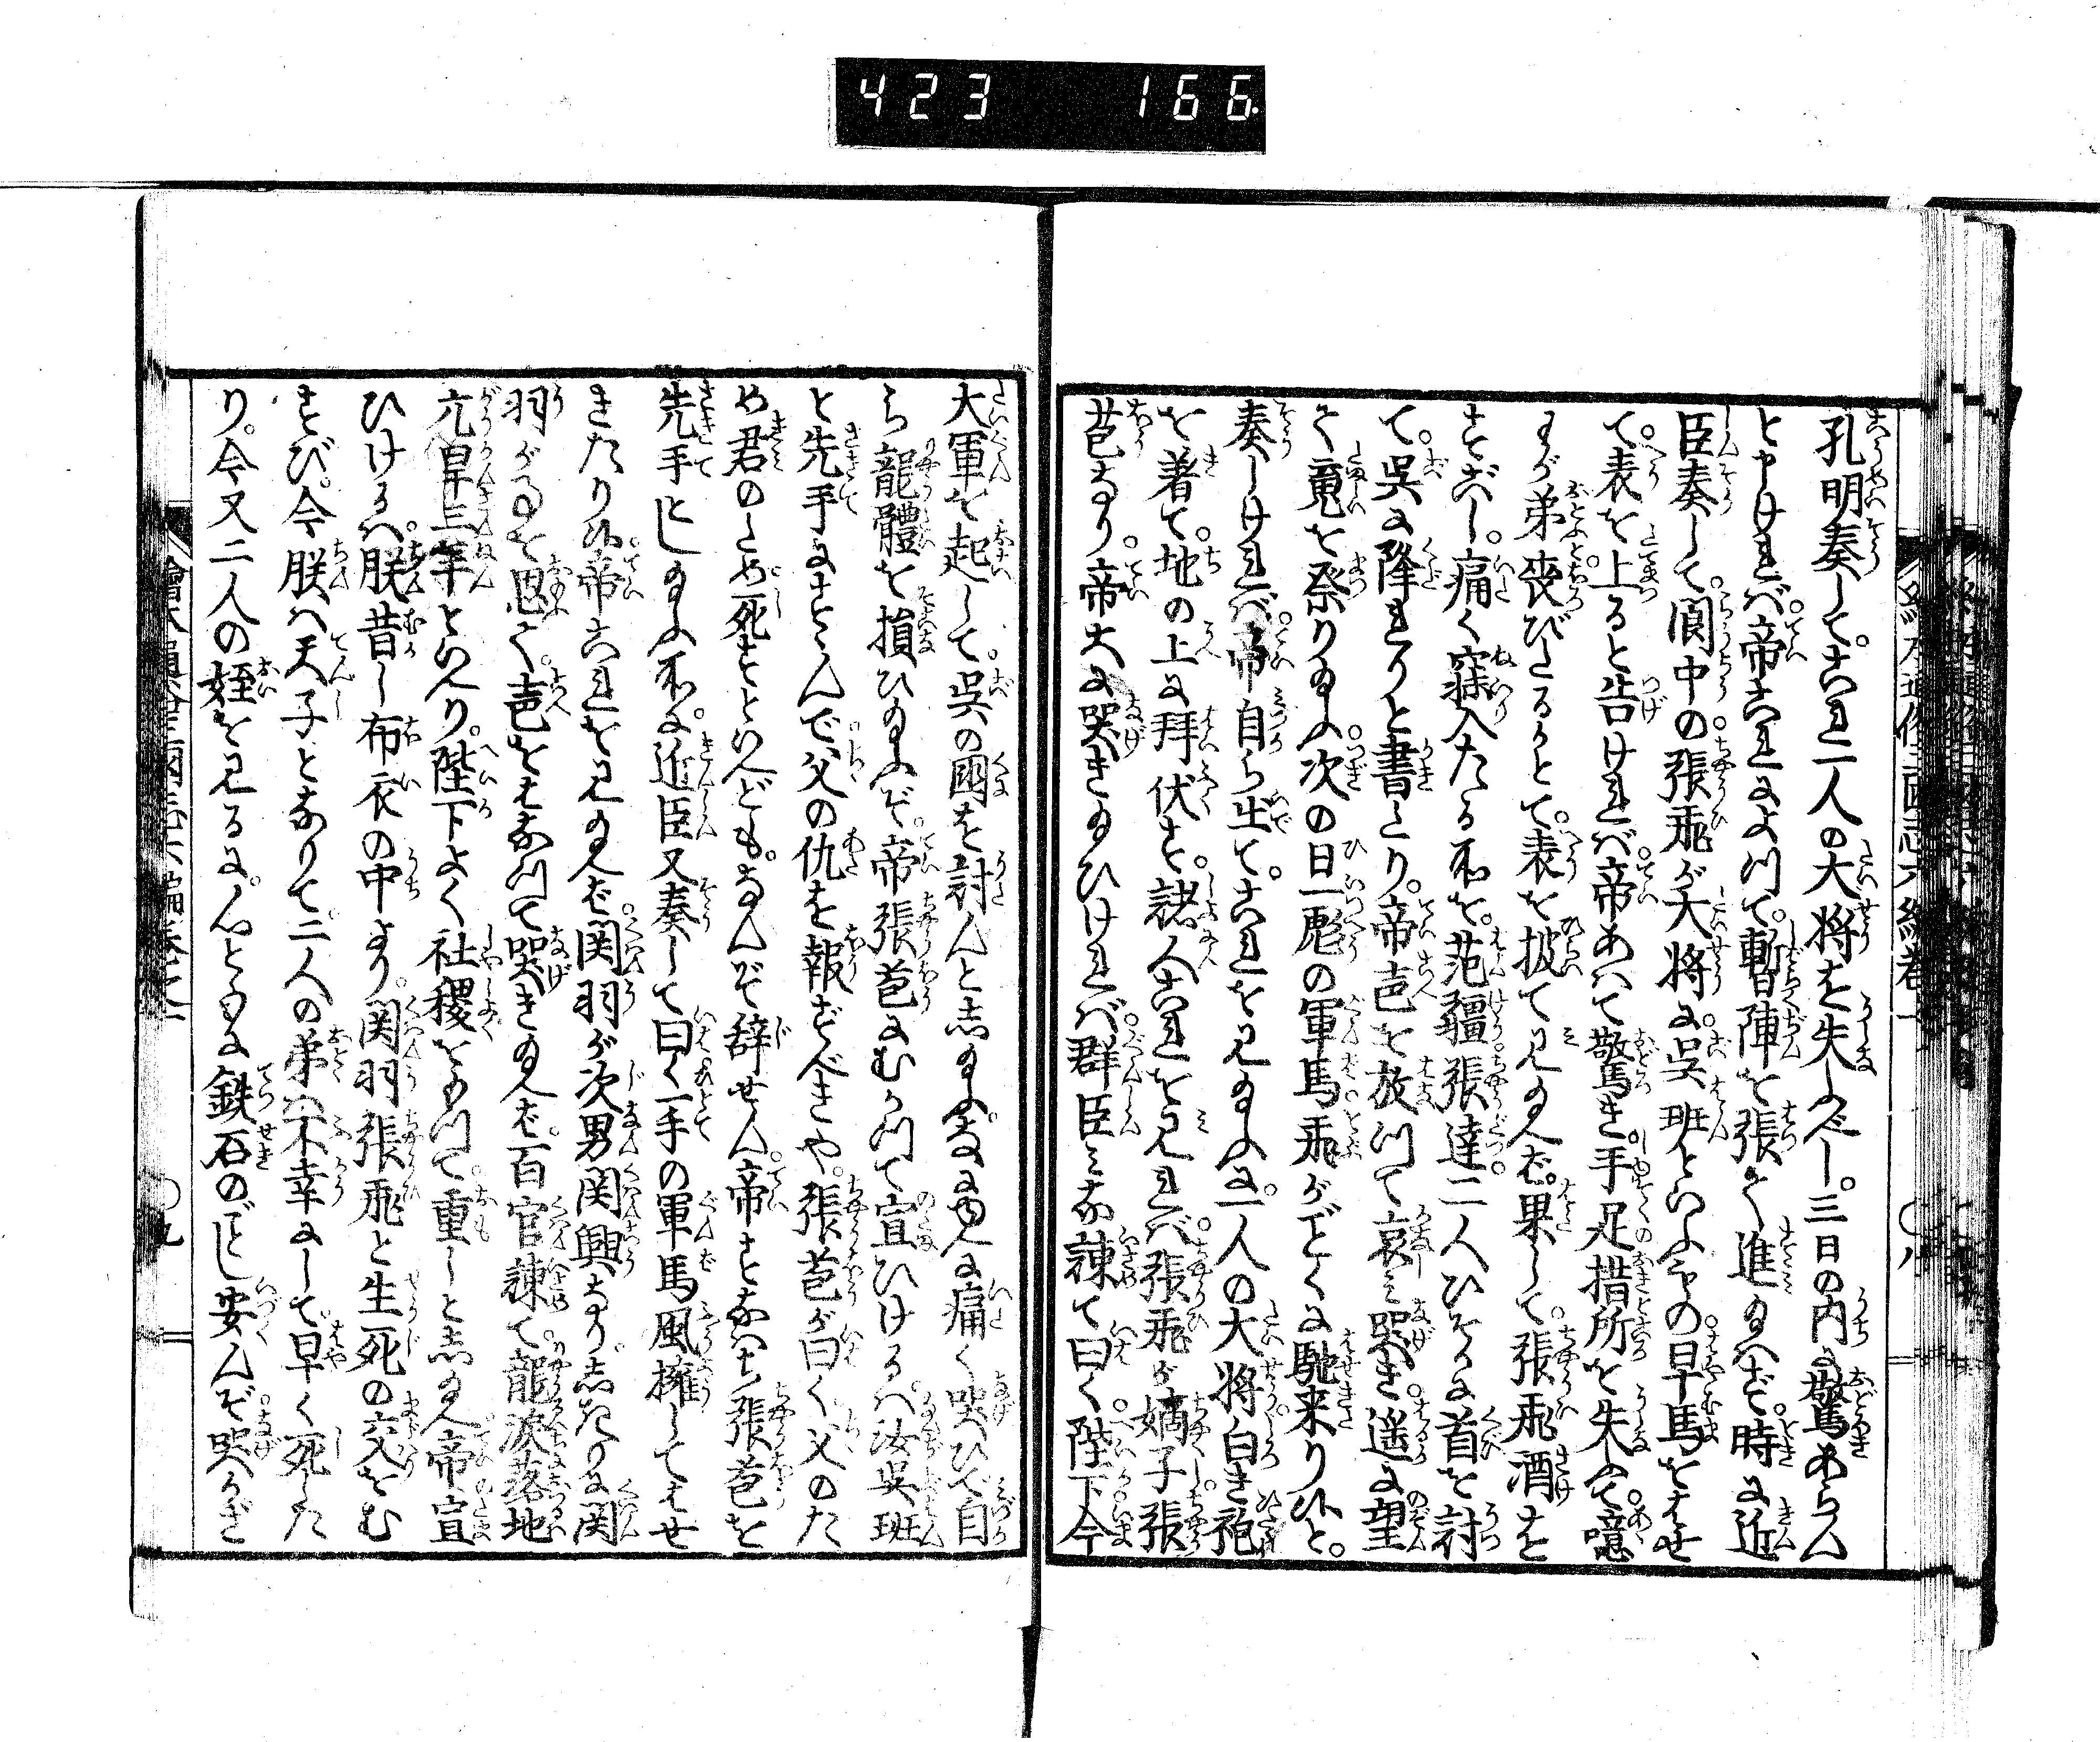 423 166
孔明奏して。これ二人の大将を失ふべし。三日の内に驚あらん
と申ければ。帝これによつて。暫陣を張て進み給へず。時に近
臣奏して。閬中の。張飛が大将に。呉班といふもの。早馬をはせ
て。表を上ると告ければ。帝あはて驚き。手足措所を失ふて。噫
わが弟喪びたるかとて。表を披て見給へば。果して。張飛酒を
すごし。痛く寐入たる所を。范疆。張達。二人ひそかに首を討
て。呉に降れりと書たり。帝声を放つて哀み哭き。遥に望
で䰟を祭り給ふ。次の日一彪の軍馬。飛がごとくに馳来り候と。
奏しければ。帝自ら出て。これを見給ふに。一人の大将白き袍
を着て。地の上に拝伏す。諸人これを見れば。張飛が嫡子張
苞なり。帝大に哭き給ひければ。群臣みな諫て曰く。陛下今
大軍を起して。呉の国を討んとし給ふ。なに由へに痛く哭ひで自
ら龍體を損ひ給ふぞ。帝張苞にむかつて宣ひけるハ。汝呉班
と先手にすゝんで。父の仇を報ずべきや。張苞が曰く。父のた
め君のため死すといへども。なんぞ辞せん。帝すなハち張苞を
先手とし給ふ所に。近臣又奏して曰く。一手の軍馬風擁してはせ
きたり候。帝これを見給へば。関羽が次男関興なり。しきりに関
羽が事を思て。声をはなつて哭き給へば。百官諫て。龍涙落地
亢旱三年といへり。陛下よく社稷をもつて重しとし給へ。帝宣
ひけるハ。朕昔し布衣の中より。関羽張飛と生死の交をむ
すび。今朕ハ天子となりて。二人の弟ハ不幸にして。早く死した
り。今又二人の姪を見るに。心ともに鉄石のごとし。安んぞ哭かざ